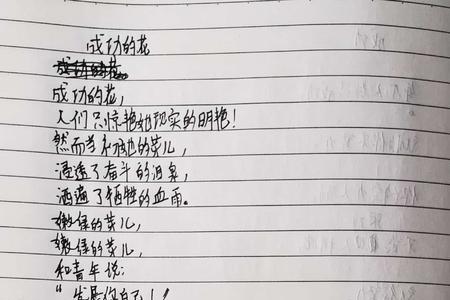 成功的花
成功的花，
人们只惊艳她现实的明艳！
然而当初她的芽儿，
浸透了奋斗的泪泉，
洒遍了牺牲的血雨。
嫩绿的芽儿，
嫩绿的芽儿，
和青年说：
“发展你自己！”